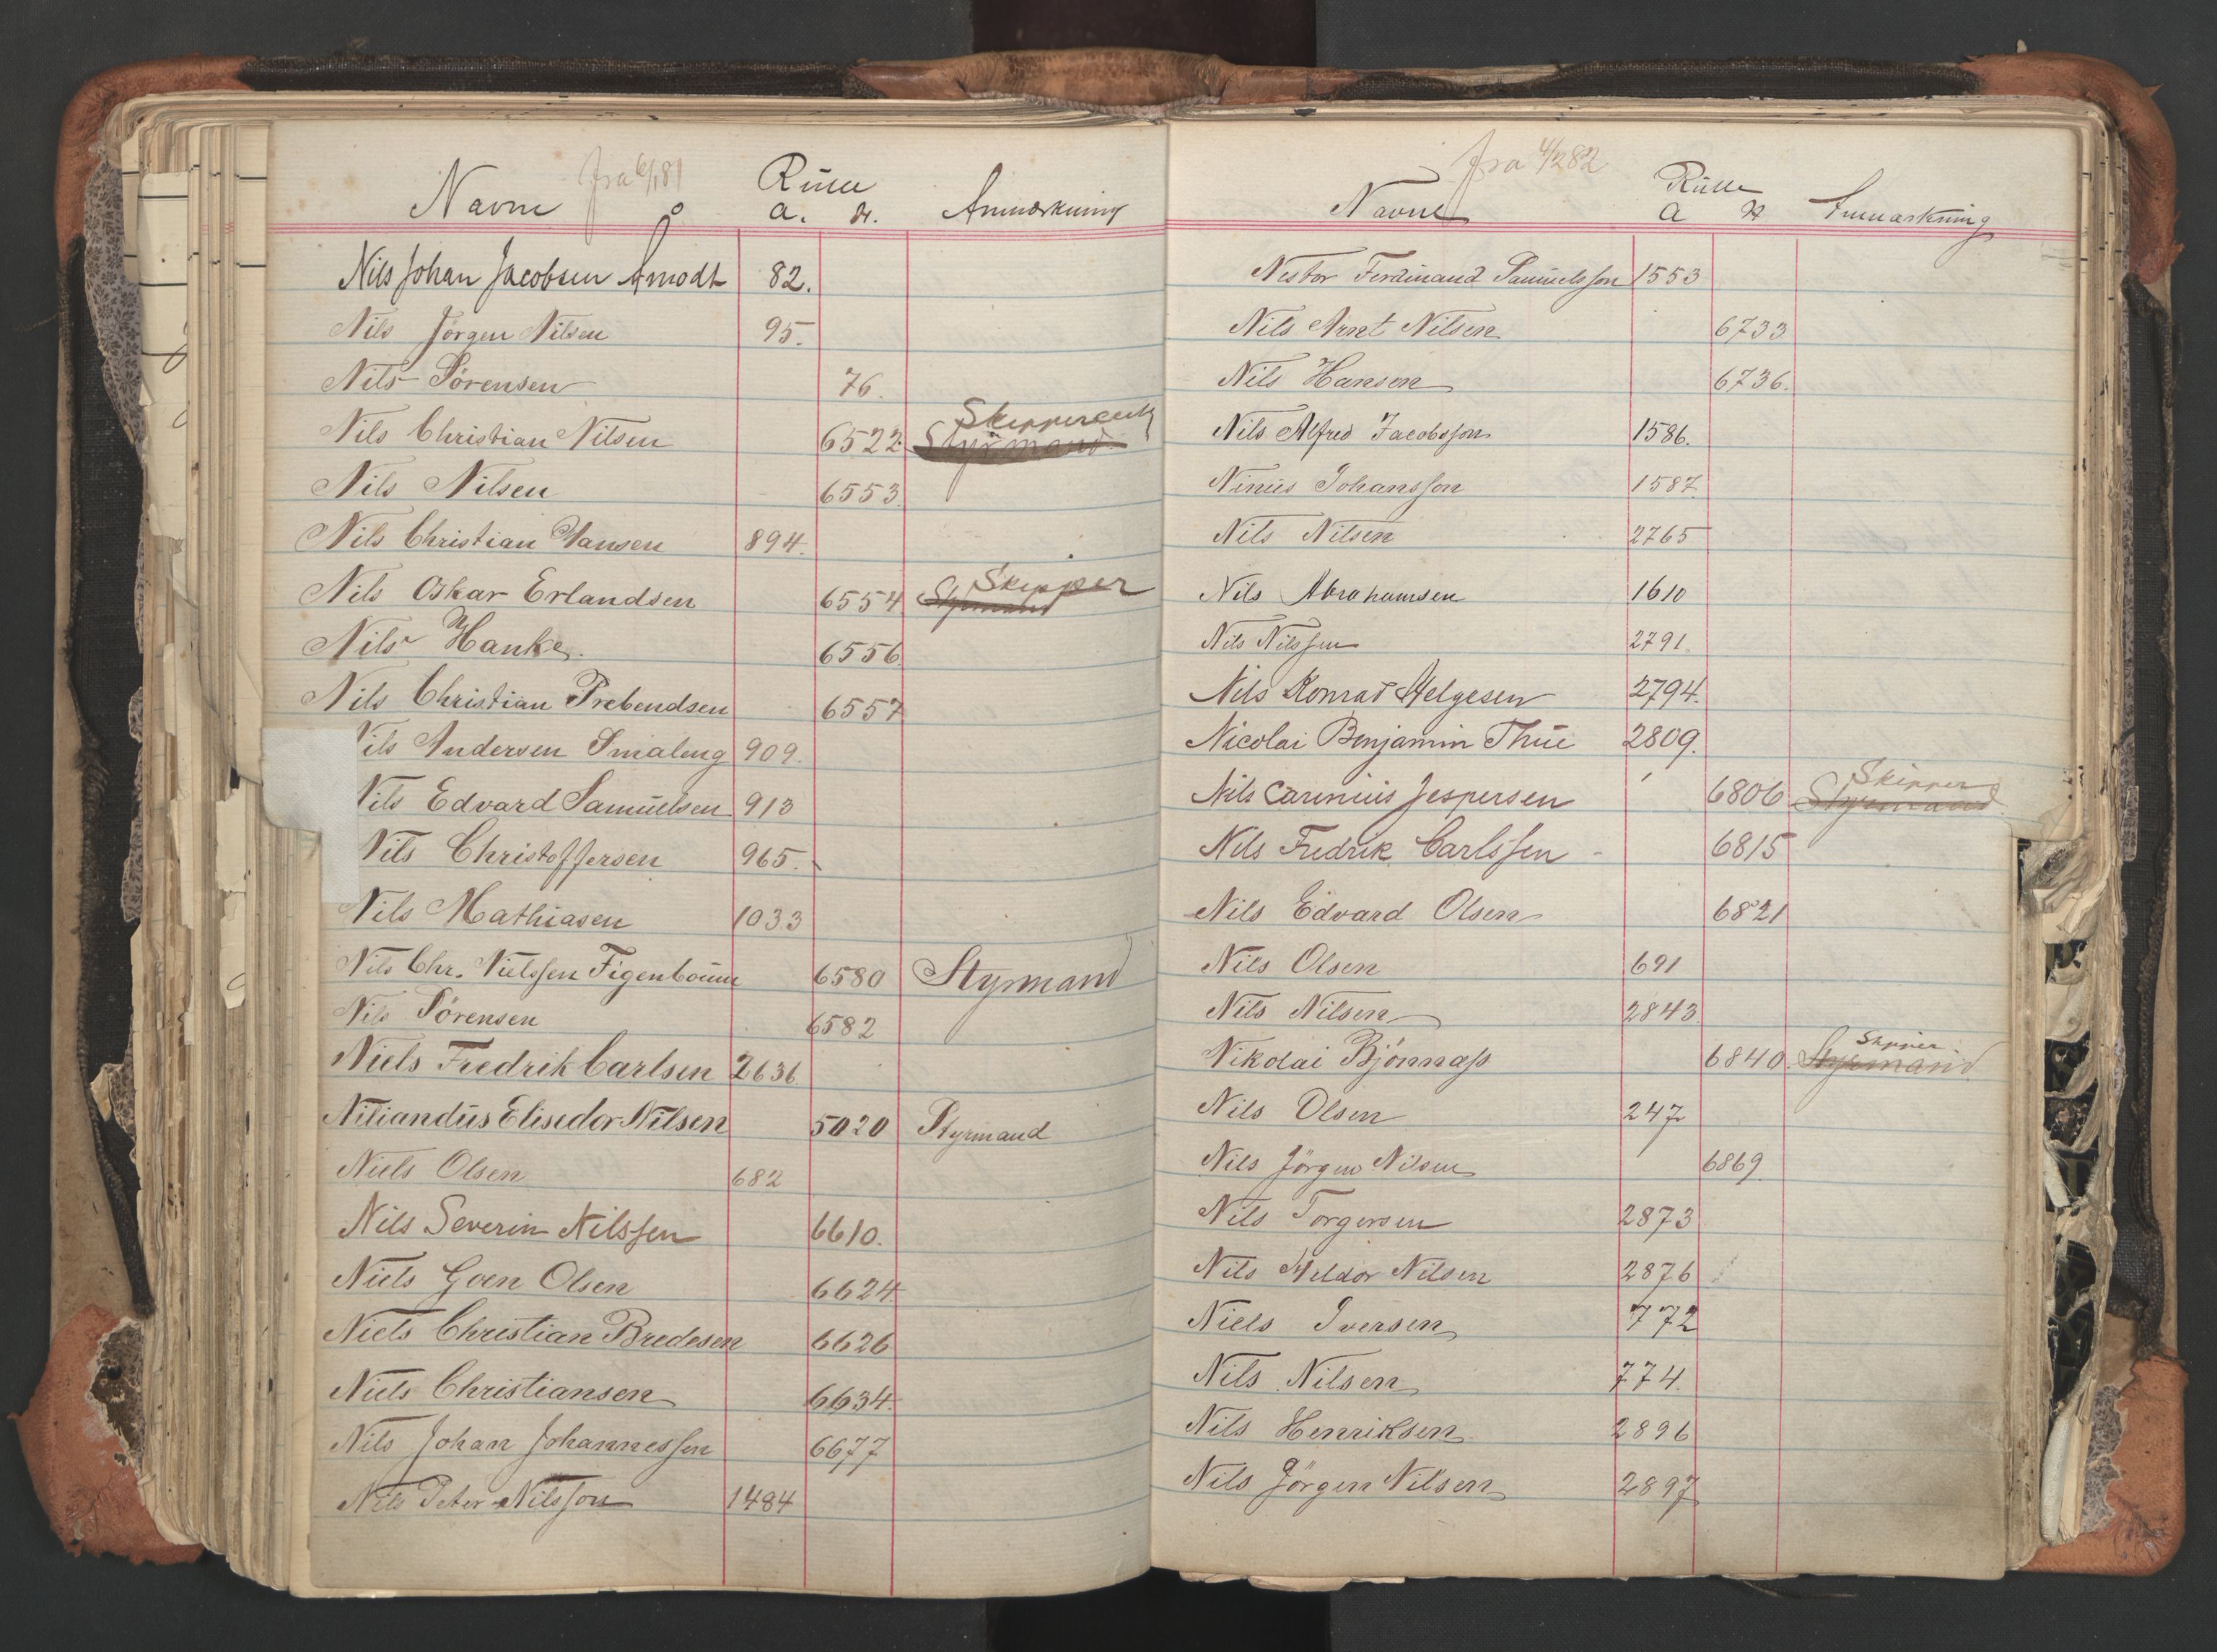 fra 6/181
Navne Rulle Anmærkning
a. H.
Nils Johan Jacobsen Åmodt 82.
Nils Jörgen Nilsen 95.
Nils Sörensen 76.
Skippereux
Nils Christian Nilsen 6522. Styrmand
Nils Nilsen 6553.
Nils Christian Hansen 894.
Skipper
Nils Oskar Erlandsen 6554 Styrmand
Nils Hanke. 6556
Nils Christian Prebendsen 6557
Nils Andersen Smaleng 909.
Nils Edvard Samuelsen 913
Nils Christoffersen 965.
Nils Mathiasen 1033
Nils Chr. Nielssen Figenboum 6580 Styrmand
Nils Sörensen 6582
Niels Fredrik Carlsen 2636
Niliandus Elisedor Nilsen 5020 Styrmand
Niels Olsen 682
Nils Severin Nilssen 6610.
Niels Goen Olsen 6624.
Niels Christian Bredesen 6626
Niels Christiansen 6634.
Nils Johan Johannessen 6677
Nils Peter Nilsson 1484
fra 4/282
Navne Rulle Anmærkning
a H
Nestor Ferdinand Samuelsson 1553
Nils Arnt Nilsen 6733
Nils Hansen 6736.
Nils Alfred Jacobsson 1586.
Ninus Johansson 1587.
Nils Nilsen 2765
Nils Abrahamsen 1610
Nils Nilssen 2791.
Nils Konrad Helgesen 2794.
Nicolai Benjamin Thue 2809.
Skipper
Nils Carinius Jespersen 6806 Styrmand
Nils Fredrik Carlssen 6815
Nils Edvard Olsen 6821
Nils Olsen 691
Nils Nilsen 2843.
Skipper
Nikolai Björnnæss 6840. Styrmand
Nils Olsen 247
Nils Jörgen Nilsen 6869.
Nils Torgersen 2873
Nils Meldor Nilsen 2876
Niels Iversen 772
Nils Nilsen 774.
Nils Henriksen 2896
Nils Jörgen Nilsen 2897